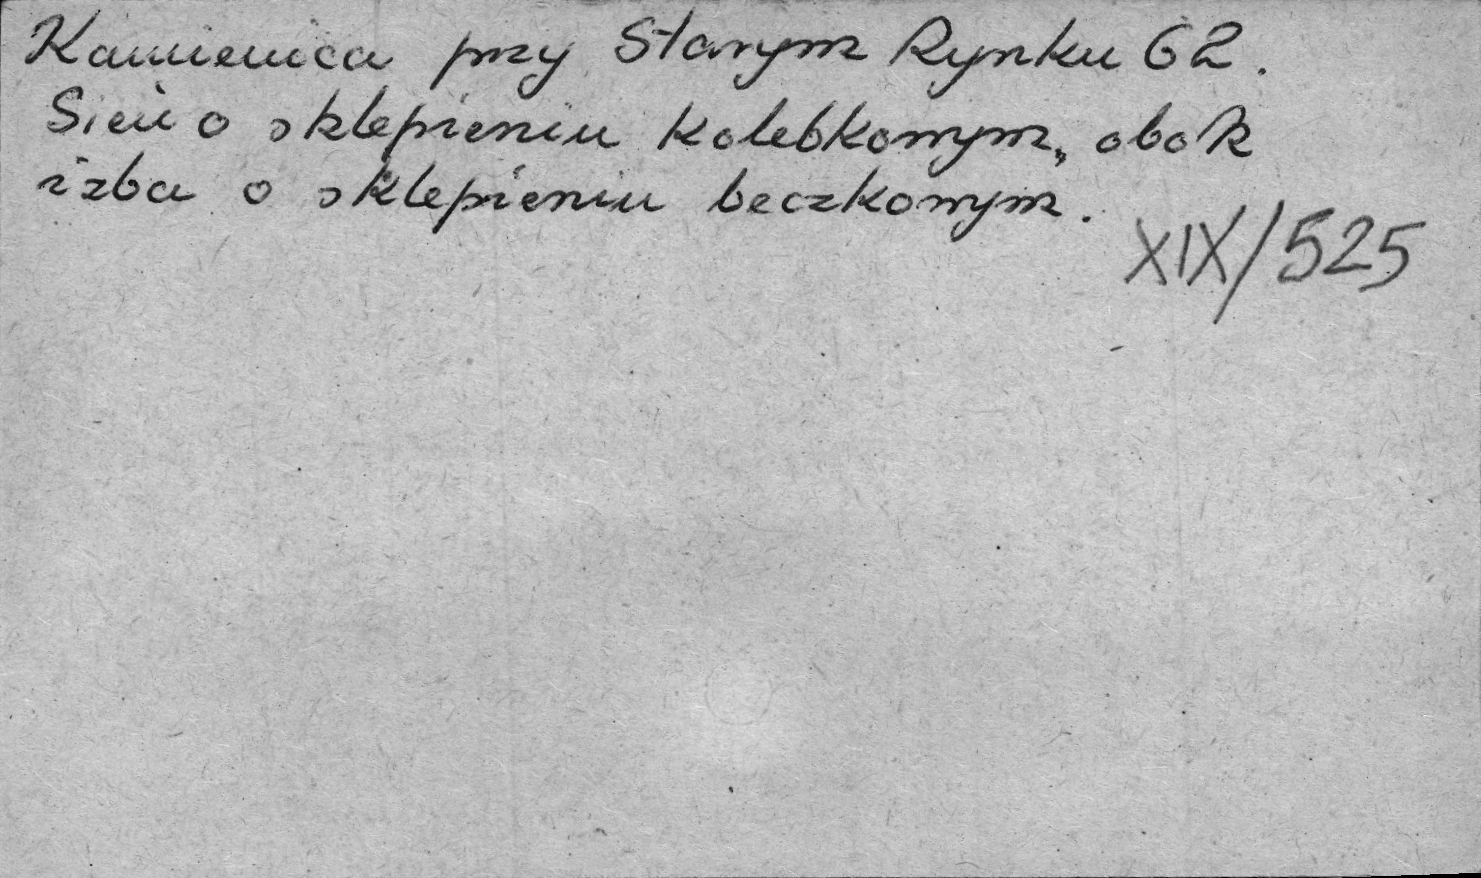 Kamienica przy Starym Rynku 62.
Sień o sklepieniu kolebkowym, obok
izba o sklepieniu beczkowym.
XIX/525